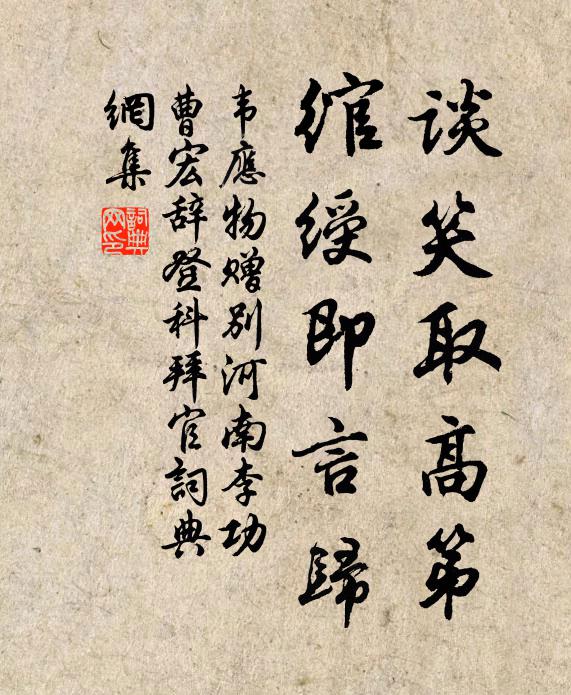 谈笑取高第
绾绶即言歸
韦應物赠别河南李功
曹宏辞登科拜官詞典
網集
詞典
网印